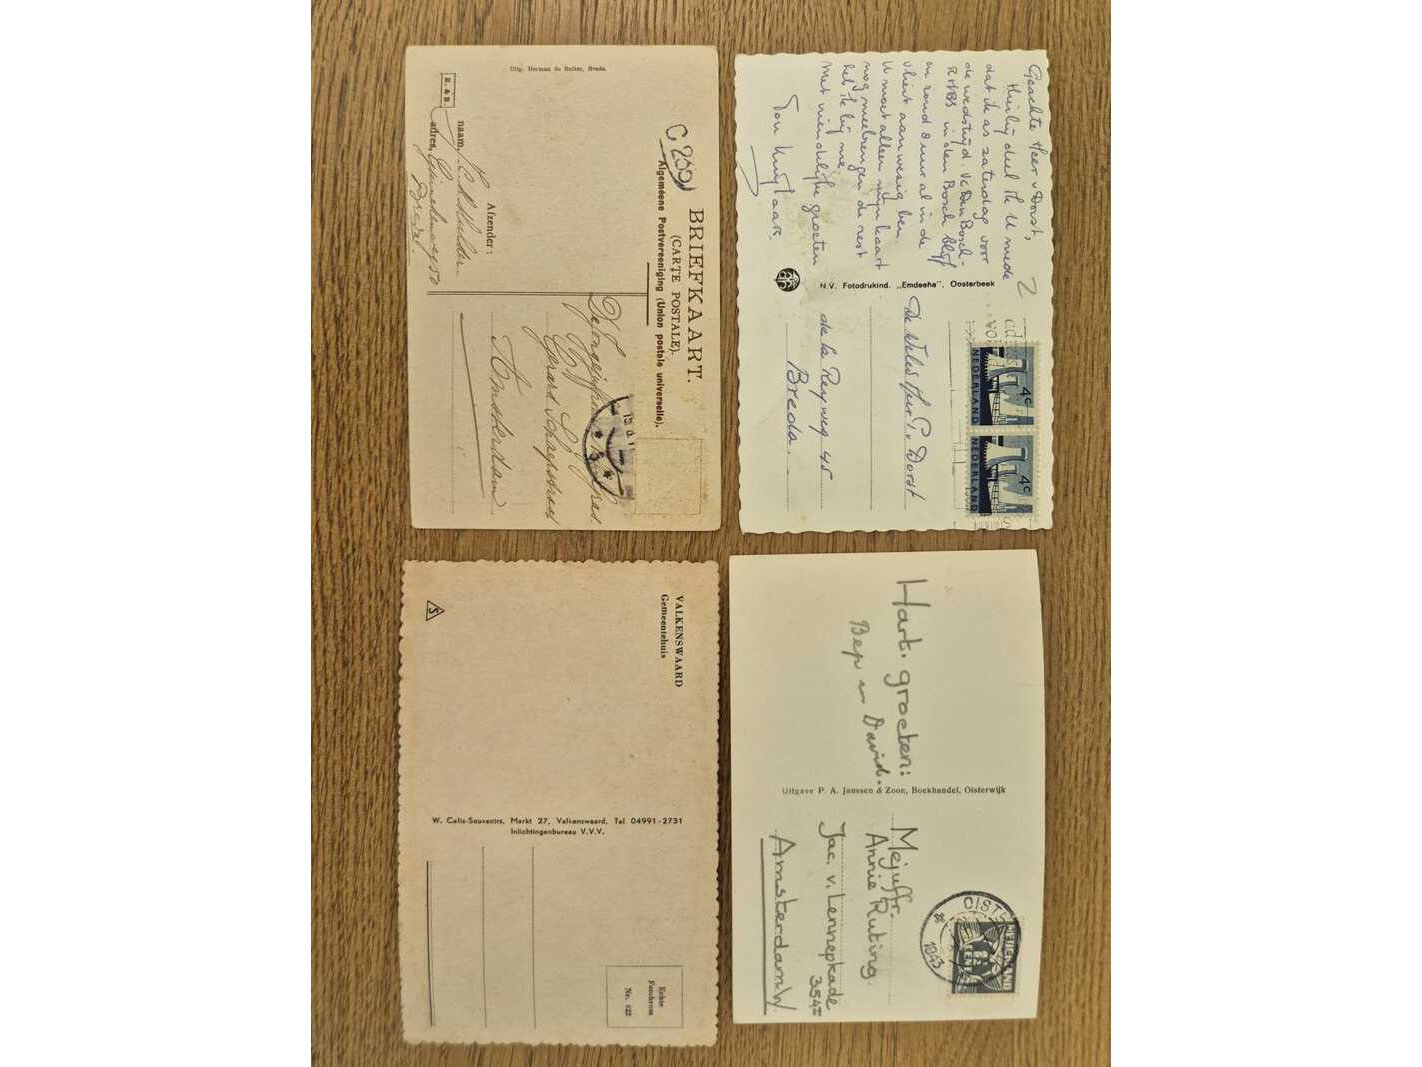 Uitg. Herman de Ruiter, Breda.
C 200
BRIEFKAART.
(CARTE POSTALE).
Algemeene Postvereeniging (Union postale universelle).
R. & B.
Afzender:
naam,
adres,
Breda.
Gerard Schaepstraat
Amsterdam
Geachte Heer v Dorst,
Hierbij deel ik U mede
dat ik a.s. zaterdag voor
de wedstrijd. VC Den Bosch-
RHBS in den Bosch blijf
en rond 8 uur al in de
aanwezig ben.
U moet alleen mijn kaart
nog meebrengen de rest
heb ik bij me.
Met vriendelijke groeten
Ton
2
N.V. Fotodrukind. „Emdeeha", Oosterbeek
De Weled. Heer P. v. Dorst
de la Reyweg 45
Breda.
4c
NEDERLAND
4c
NEDERLAND
VALKENSWAARD
Gemeentehuis
S
W. Calis-Souvenirs, Markt 27, Valkenswaard, Tel. 04991-2731
Inlichtingenbureau V.V.V.
Echte
Fotobrom
Nr. 122
Hart. groeten:
Bep en David.
Uitgave P. A. Janssen & Zoon, Boekhandel, Oisterwijk
Mejuffr.
Annie Ruting.
Jac. v. Lennepkade
354
Amsterdam. W.
OIST
1943
NEDERLAND
CENT